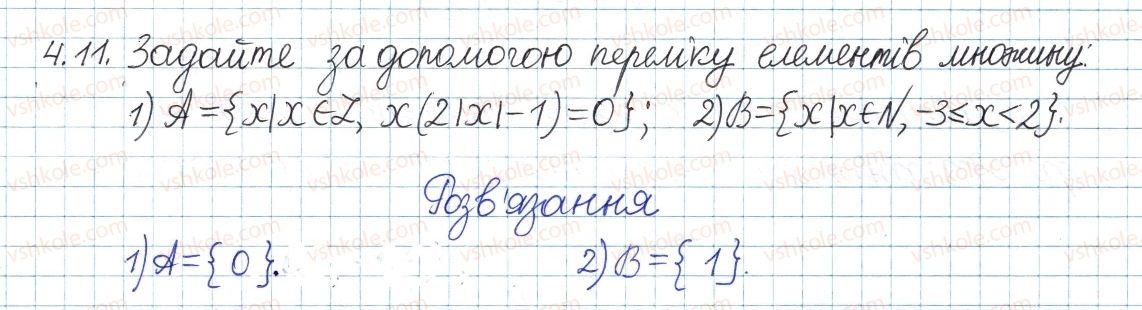 4.11. Задайте за допомогою переліку елементів множину:
1) A={x|x∈Z, x(2|x|-1)=0}; 2) B={x|x∈N, -3≤x<2}.
Розв'язання
1) A={0}. 2) B={1}.